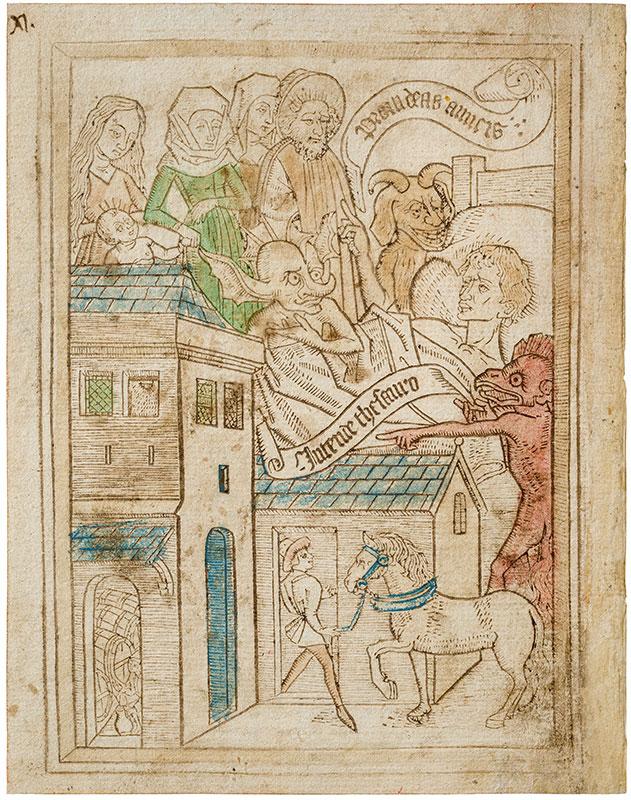 XI.
Prouideas amicis
Intende thesauro